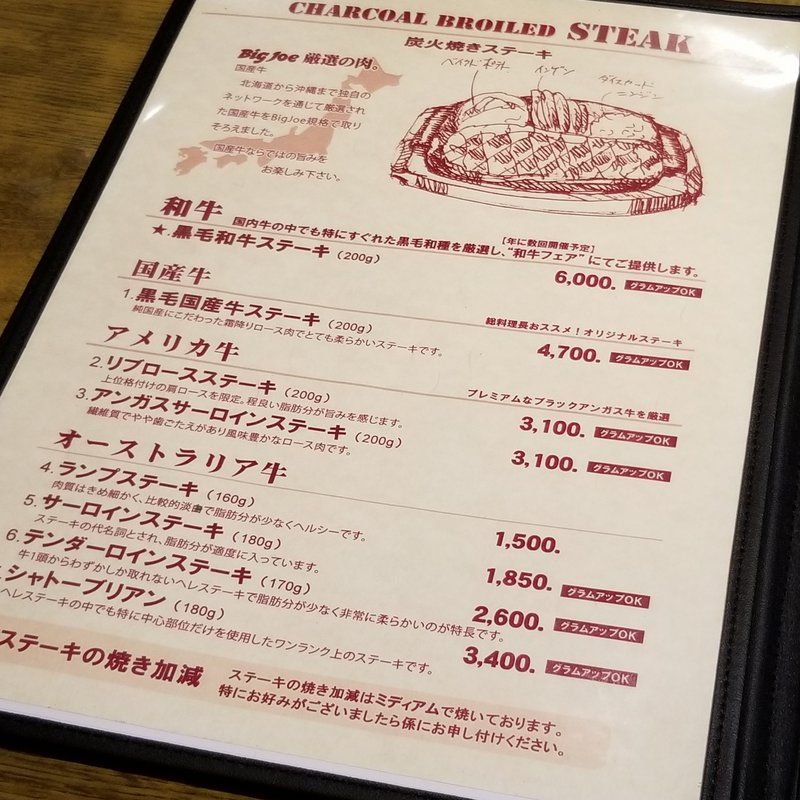 CHARCOAL BROILED STEAK
炭火焼きステーキ
BigJoe 厳選の肉。
国産牛
北海道から沖縄まで独自の
ネットワークを通じて厳選され
た国産牛をBigJoe規格で取り
そろえました。
国産牛ならではの旨みを
お楽しみ下さい。
ベイクドポテト
インゲン
ダイスカード
ニンジン
和牛 国内牛の中でも特にすぐれた黒毛和種を厳選し、“和牛フェア”にてご提供します。
【年に数回開催予定】
★.黒毛和牛ステーキ（200g） 6,000. グラムアップOK
国産牛 総料理長おススメ！オリジナルステーキ
1.黒毛国産牛ステーキ（200g） 4,700. グラムアップOK
純国産にこだわった霜降りロース肉でとても柔らかいステーキです。
アメリカ牛 プレミアムなブラックアンガス牛を厳選
2.リブロースステーキ（200g） 3,100. グラムアップOK
上位格付けの肩ロースを限定。程良い脂肪分が旨みを感じます。
3.アンガスサーロインステーキ（200g） 3,100. グラムアップOK
繊維質でやや歯ごたえがあり風味豊かなロース肉です。
オーストラリア牛
4.ランプステーキ（160g） 1,500.
肉質はきめ細かく、比較的淡白で脂肪分が少なくヘルシーです。
5.サーロインステーキ（180g） 1,850. グラムアップOK
ステーキの代名詞とされ、脂肪分が適度に入っています。
6.テンダーロインステーキ（170g） 2,600. グラムアップOK
牛1頭からわずかしか取れないヘレステーキで脂肪分が少なく非常に柔らかいのが特長です。
シャトーブリアン（180g） 3,400. グラムアップOK
ヘレステーキの中でも特に中心部位だけを使用したワンランク上のステーキです。
ステーキの焼き加減 ステーキの焼き加減はミディアムで焼いております。
特にお好みがございましたら係にお申し付けください。